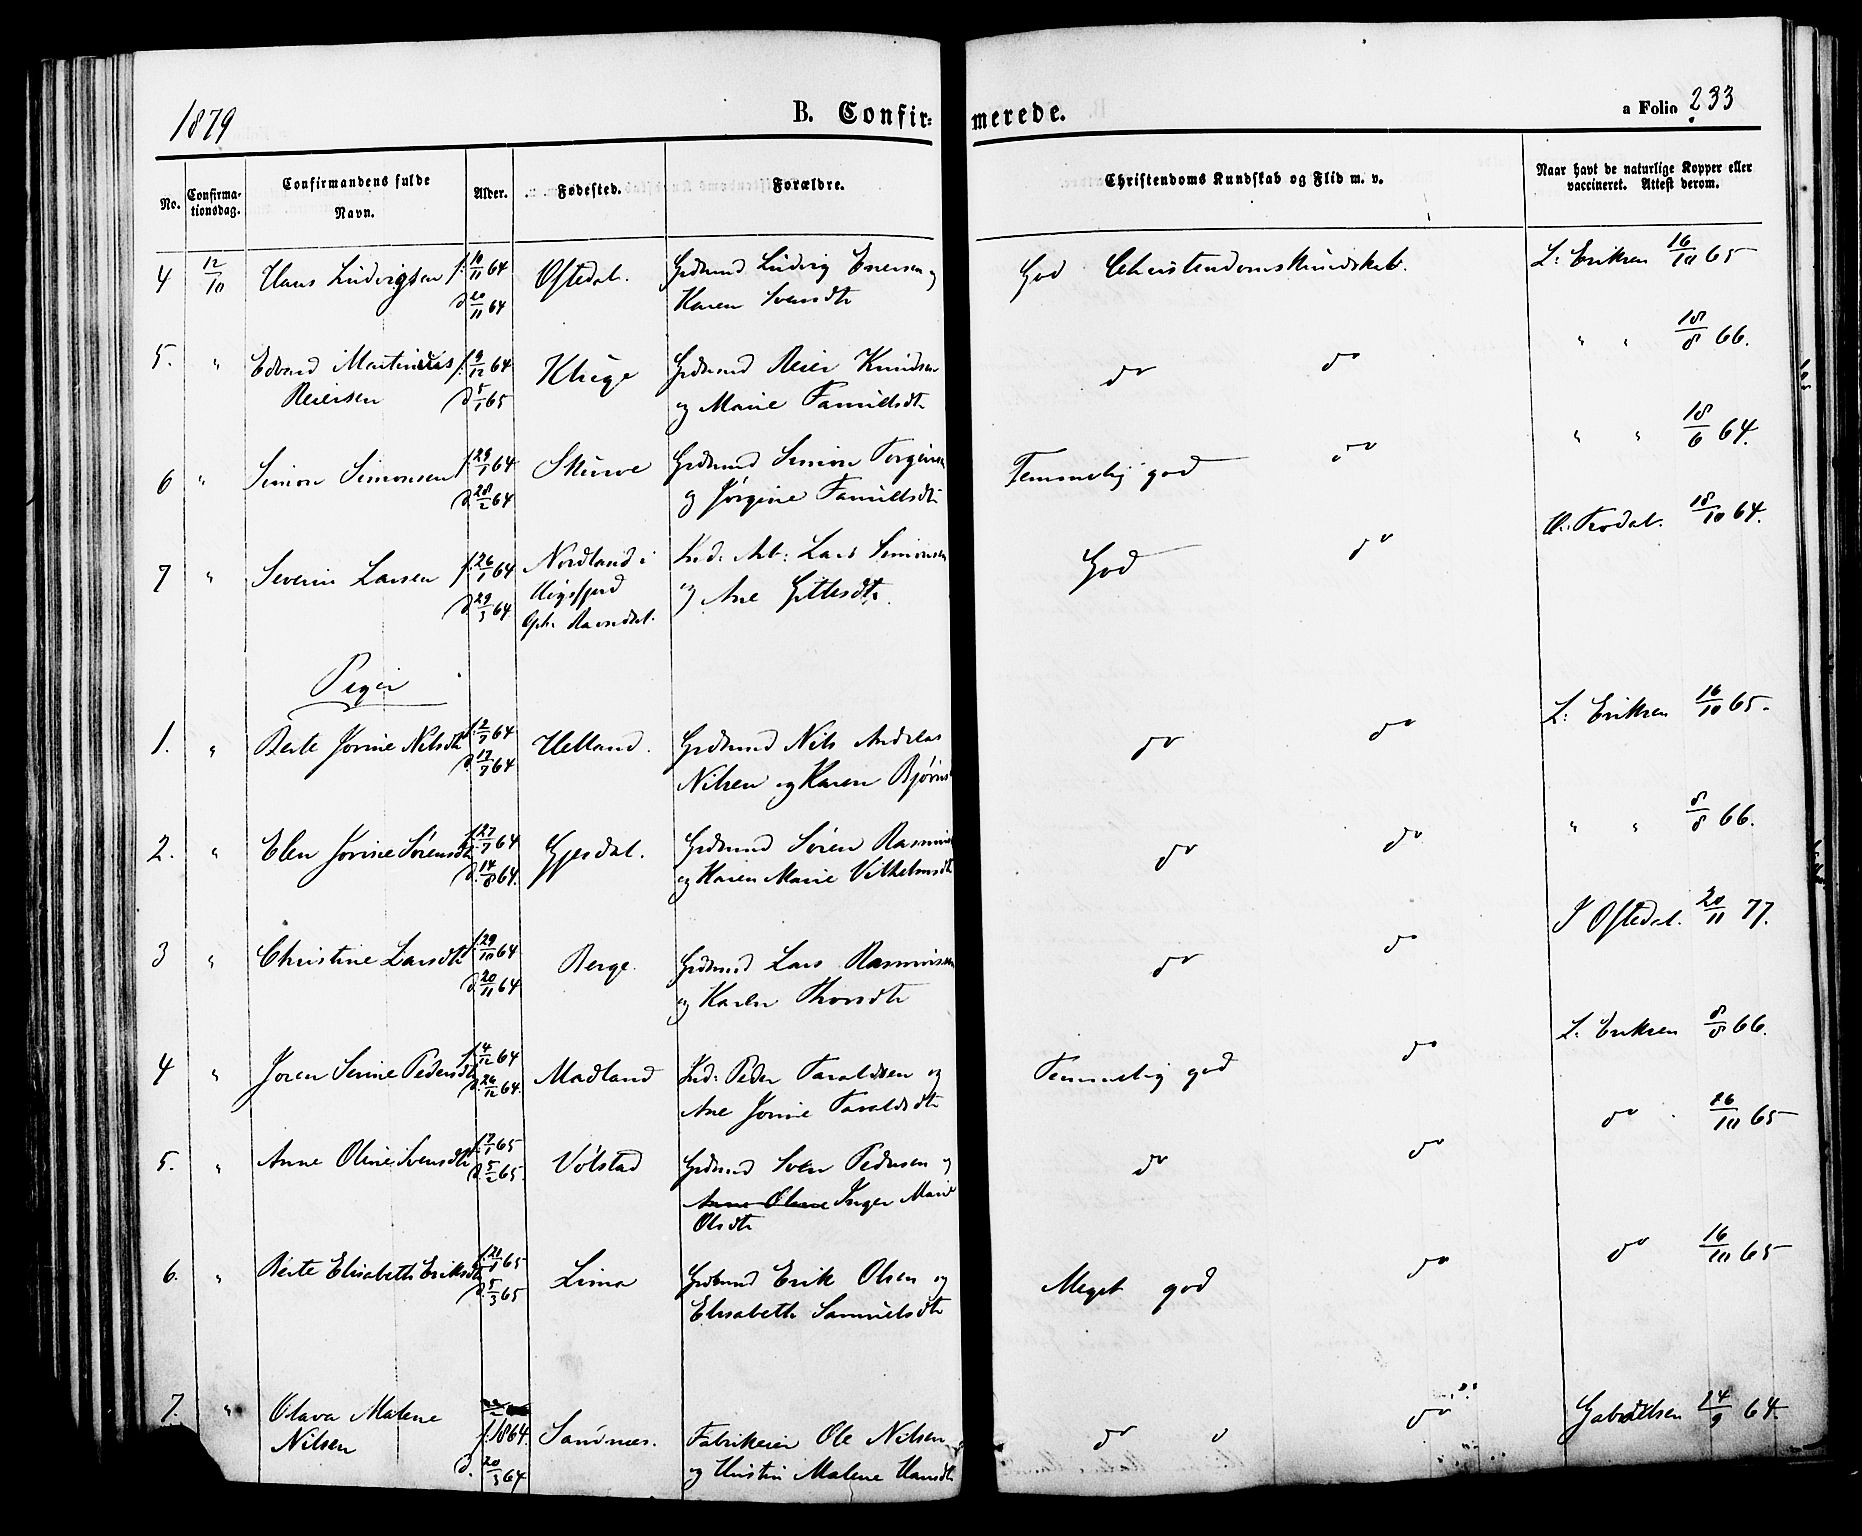 1879
B. Confir-
merede.
a Folio 233
No.
Confirma-
tionsdag.
Confirmandens fulde
Navn.
Alder.
Fødested.
Forældre.
Christendoms Kundskab og Flid m. v.
Naar havt de naturlige Kopper eller
vaccineret. Attest derom.
4 12/10 Hans Ludvigsen f. 10/11 64 Oftedal. Grdmnd Ludvig Enersen og God Christendomskundskab. L: Eriksen 16/10 65
d. 20/11 64 Karen Svendsdtr
5. " Edvard Martinius f. 9/12 64 Kluge Grdmnd Reier Knudsen do do " " 18/8 66.
Reiersen d. 5/1 65 og Marie Samuelsdtr
6 " Simon Simonsen f. 23/1 64 Skurve Grdmnd Simon Torgersen Temmelig god do " " 18/6 64.
d. 28/2 64 og Jørgine Samuelsdtr
7 " Severin Larsen f. 26/1 64 Nordland i Ind: Arb: Lars Simonsen God do O. Frodal. 18/10 64.
d. 29/3 64 Høgsfjord og Ane Gittesdtr.
Oph. Ravndal.
Piger
1. " Berte Jorine Nilsdtr f. 2/7 64 Helland. Grdmnd Nils Andreas do do L: Eriksen 16/10 65.
d. 17/7 64 Nilsen og Karen Bjørns
2. " Elen Jorine Sørensdtr f. 27/7 64 Gjesdal. Grdmnd Søren Rasmus do do " " 8/8 66.
d. 14/8 64. og Karen Marie Vilhelmsdtr
3 " Christine Larsdtr f. 29/10 64 Berge. Grdmnd Lars Rasmussen do do J Oftedal. 20/11 77.
d. 20/11 64 og Karen Thorsdtr
4 " Joren Serine Pedersdtr f. 4/12 64 Madland Ind: Peder Taraldsen og Temmelig god do L: Eriksen 8/8 66.
d. 26/12 64. Ane Jorine Taraldsdtr
5. " Anne Oline Svensdtr f. 17/1 65 Vølstad Grdmnd Sven Pedersen og do do do 26/10 65
d. 5/2 65. Anne Oline Inger Marie
Olsdtr
6. " Berte Elisabeth Eriksdtr f. 21/1 65 Lima Grdmnd Erik Olsen og Meget god do do 16/10 65
d. 5/3 65 Elisabeth Samuelsdtr
7. " Olava Malene f. 1864. Sandnes. Fabrikeier Ole Nilsen do do Gabrielsen 24/9 64.
Nilsen d. 20/3 64 og Kirstin Malene Hansdtr